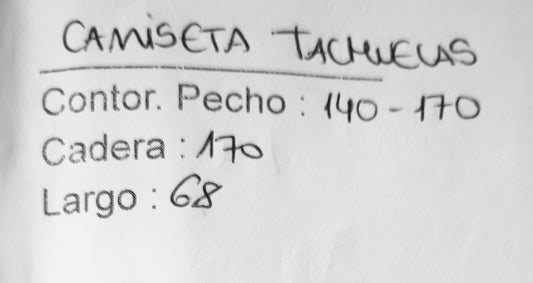 CAMISETA TACHUELAS
Contor. Pecho : 140 - 170
Cadera : 170
Largo : 68